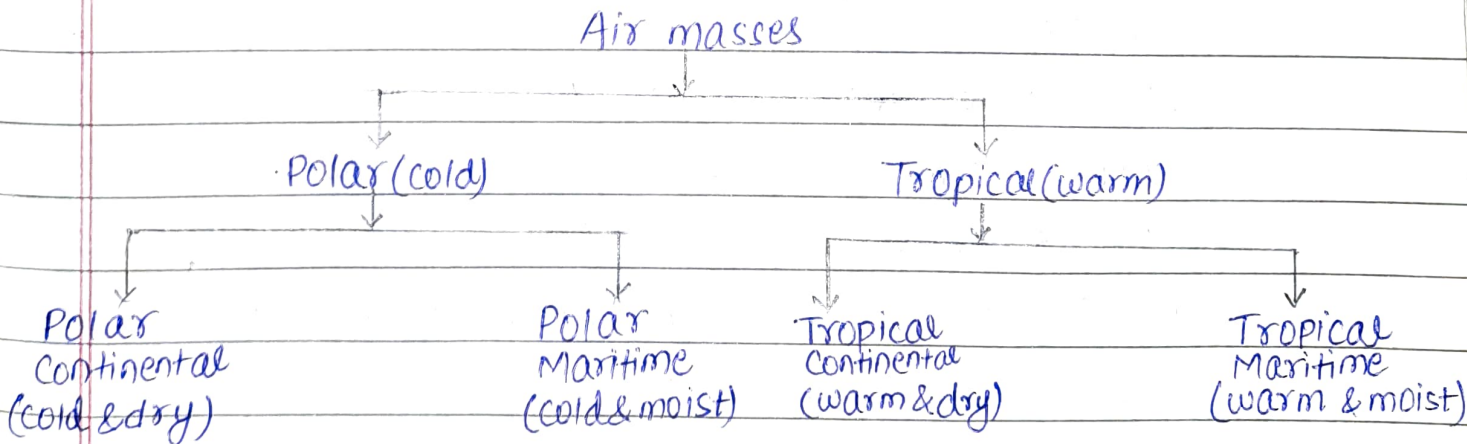 Air masses
Polar (cold)
Tropical (warm)
Polar
Continental
(cold & dry)
Polar
Maritime
(cold & moist)
Tropical
Continental
(warm & dry)
Tropical
Maritime
(warm & moist)